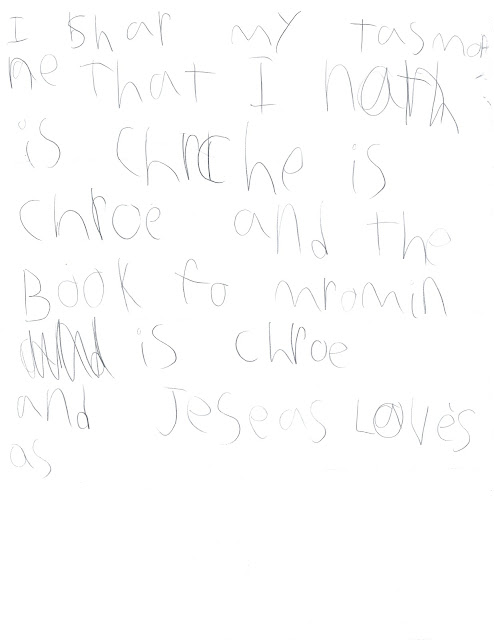 I shar my tasmot
ne That I nath
is chrche is
chroe and the
Book fo mromin
is chroe
and Jeseas Loves
as